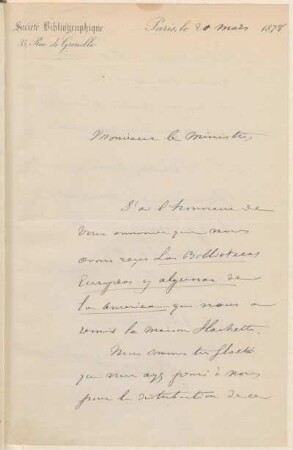 Société Bibliographique
35 Rue de Grenelle
Paris, le 20 mars 1878
Monsieur le Ministre,
J'ai l'honneur de
vous annoncer que nous
avons reçu Las Bibliotecas
Europeas y algunas de
la America que nous a
remis la maison Hachette.
Nous sommes très
que vous ayez pensé à nous
pour la distribution de ce